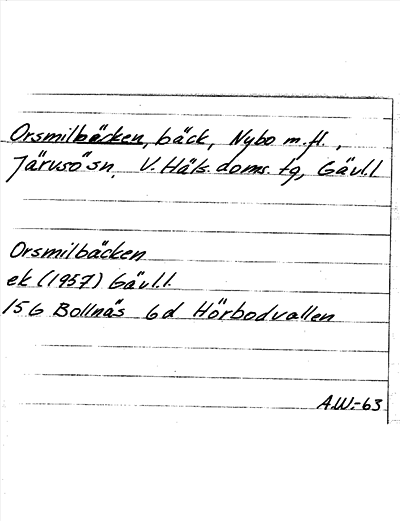 Orsmilbäcken, bäck, Nybo m.fl.,
Järvsö sn, V. Häls. doms. tg, Gävl.l
Orsmilbäcken
ek (1957) Gävl.l.
15G Bollnäs 6d Hörbodvallen
A.W.-63